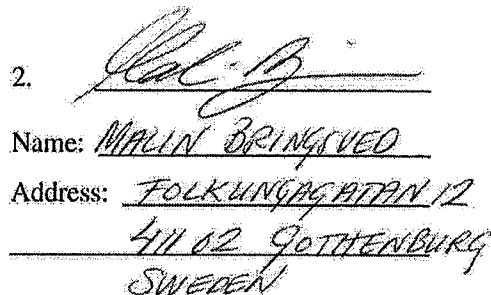 2.
Name: MALIN BRINGSVED
Address: FOLKUNGAGATAN 12
411 02 GOTHENBURG
SWEDEN